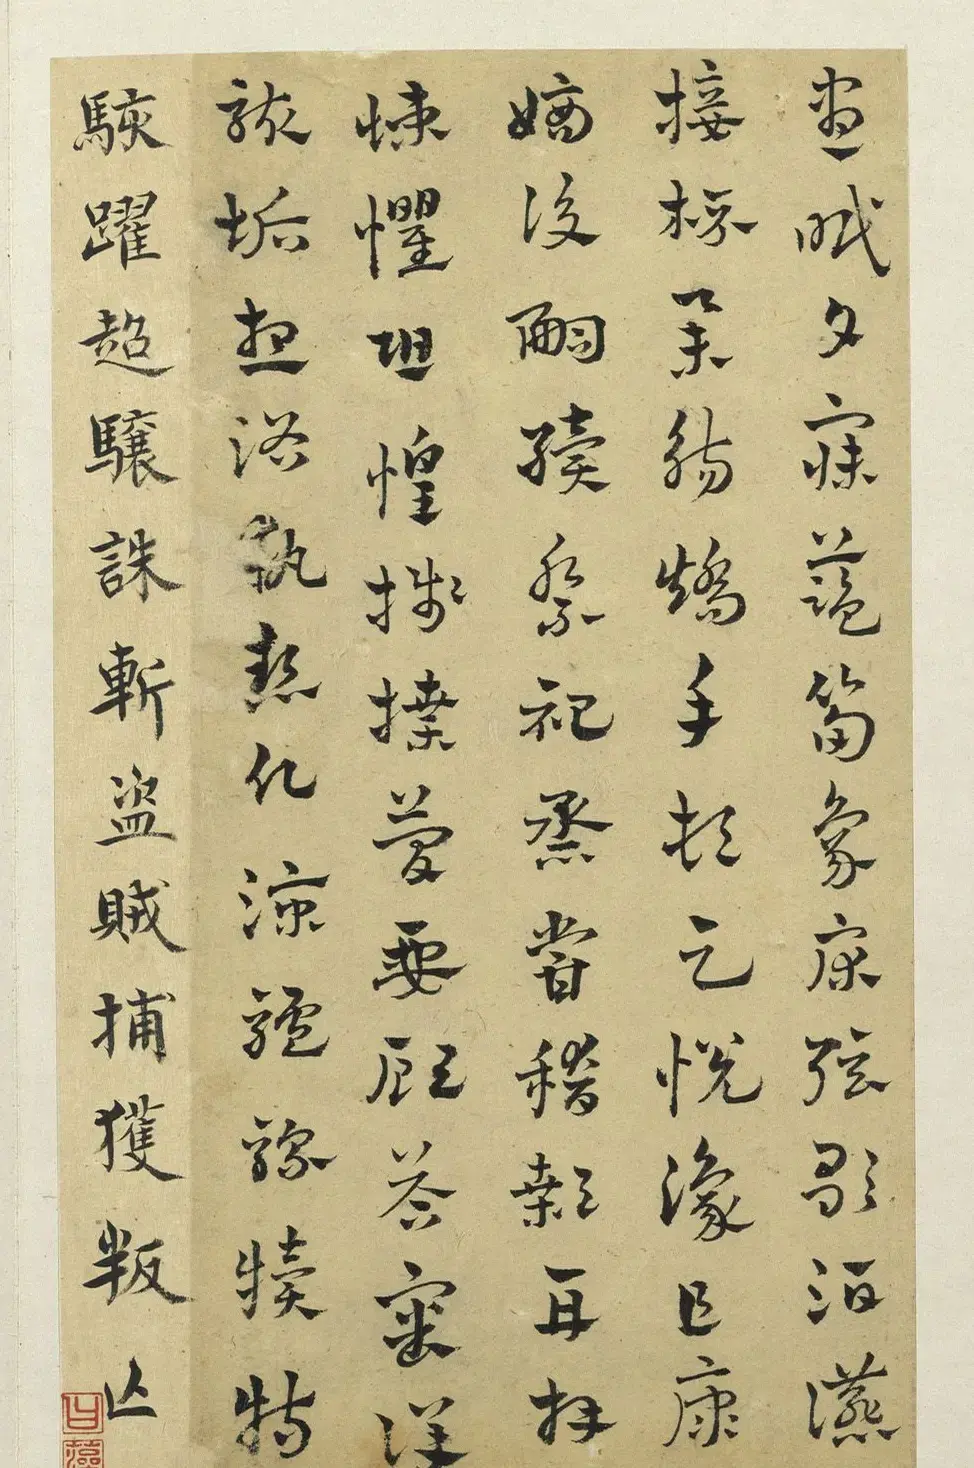 晝眠夕寐藍筍象床弦歌酒讌
接杯舉觴矯手頓足悅豫且康
嫡後嗣續祭祀烝嘗稽顙再拜
悚懼恐惶牋牒簡要顧答審詳
骸垢想浴執熱願涼驢騾犢特
駭躍超驤誅斬盜賊捕獲叛亡